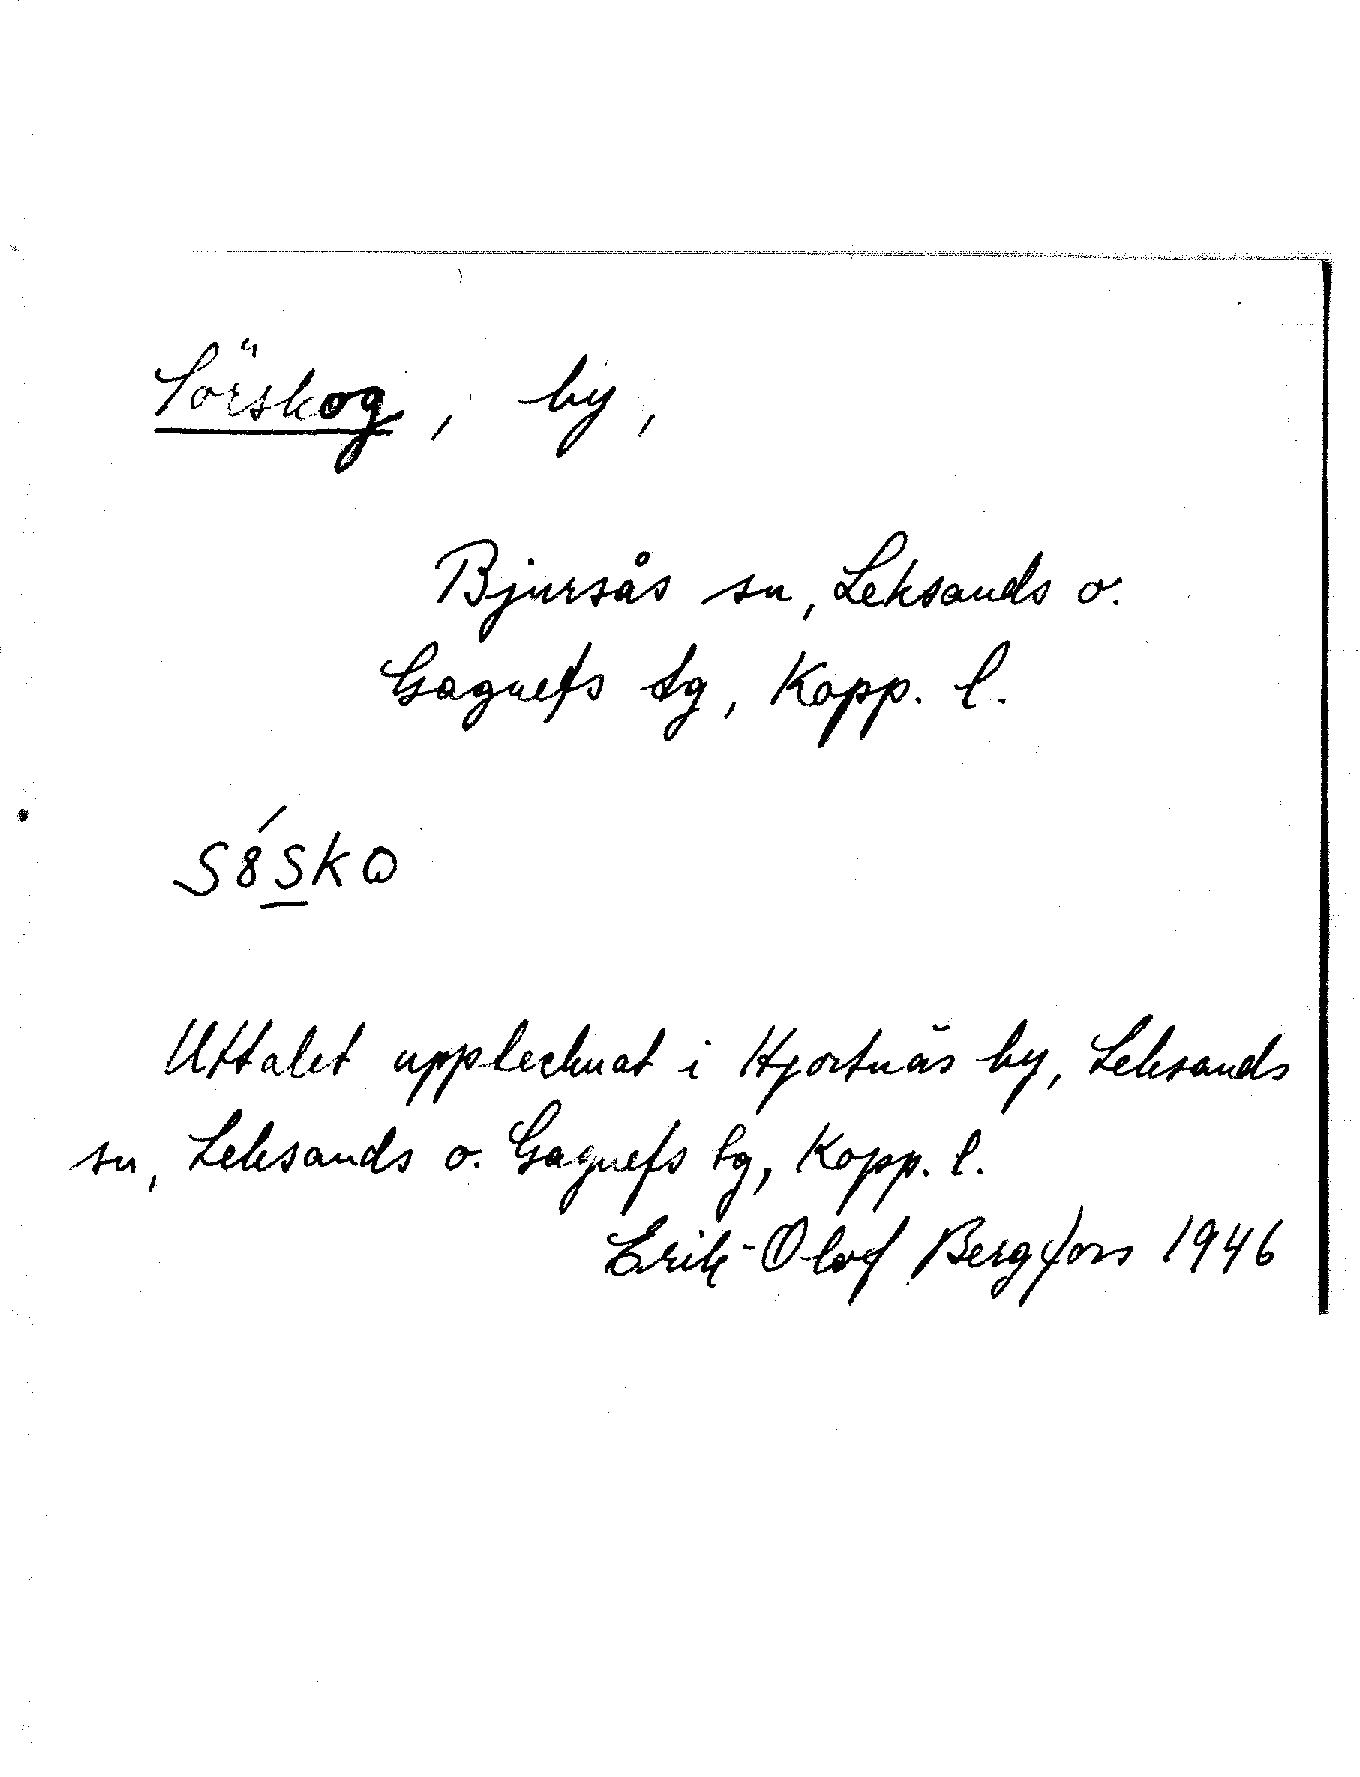 Sörskog, by,
Bjursås sn, Leksands o.
Gagnefs tg, Kopp. l.
Uttalet upptecknat i Hjortnäs by, Leksands
sn, Leksands o. Gagnefs tg, Kopp. l.
Erik-Olof Bergfors 1946